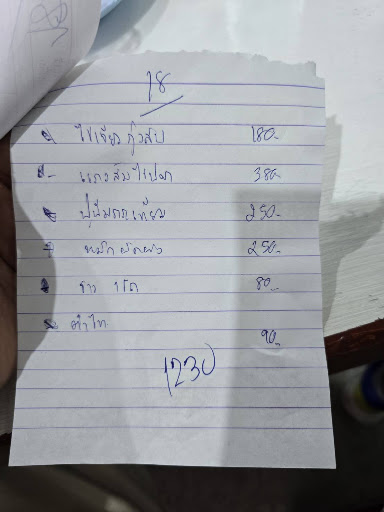 18
ไข่เจียวกุ้งสับ 180.-
แกงส้มไข่ปลา 380.-
ปูนิ่มทอดกระเทียม 250.-
หมึกผัดผง 250.-
ข้าว 1โถ 80.-
90.-
1230